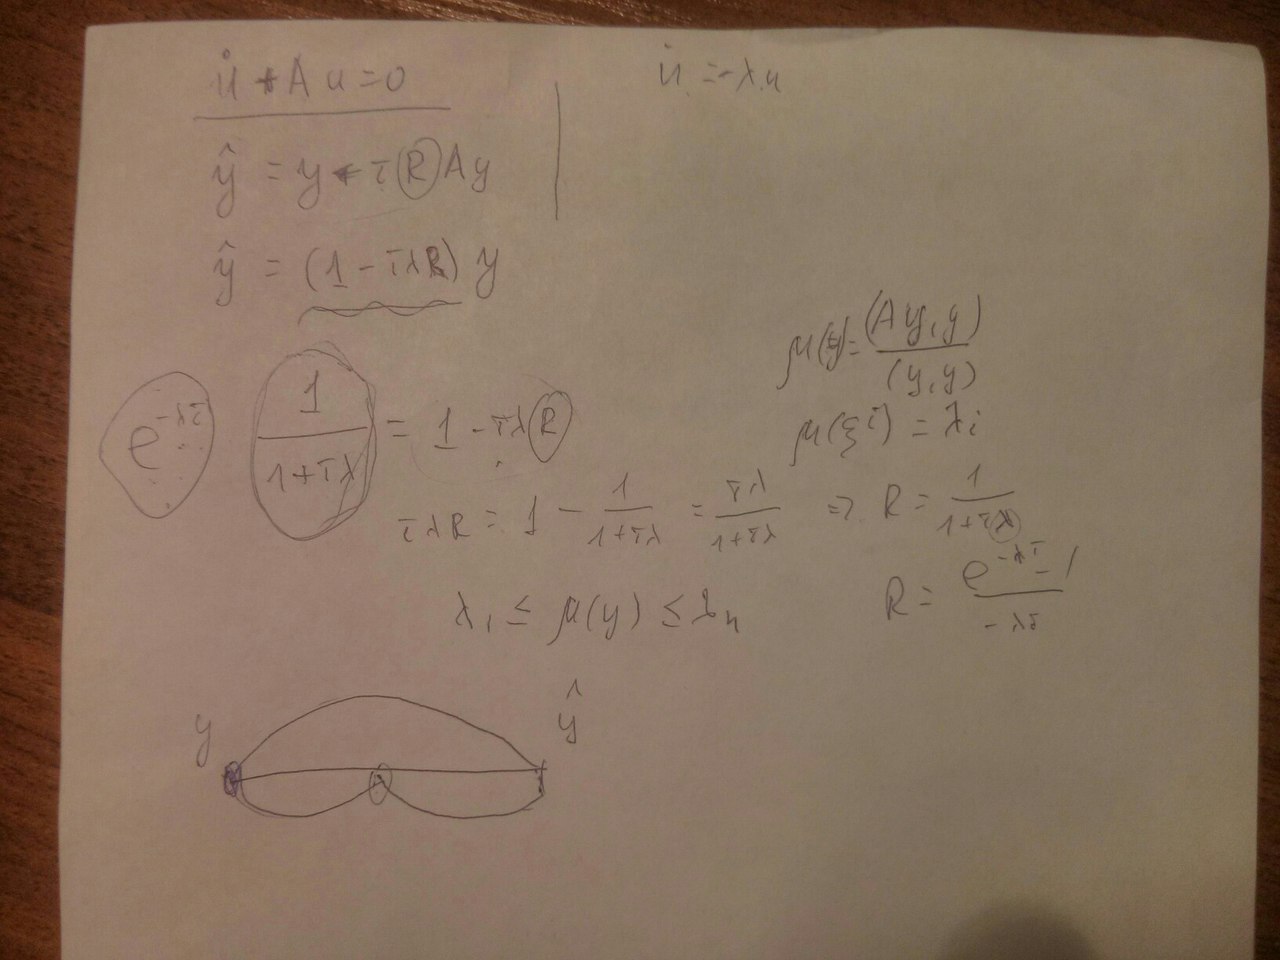 u̇ + A u = 0
u̇ = -λu
ŷ = y - τ R A y
ŷ = (1 - τλR) y
μ(y) = (Ay, y) / (y, y)
μ(ξ^i) = λ_i
e^{-λτ}
1 / (1+τλ) = 1 - τλ R
τλR = 1 - 1 / (1+τλ) = τλ / (1+τλ) ⇒ R = 1 / (1+τλ)
R = (e^{-λτ} - 1) / (-λτ)
λ_1 ≤ μ(y) ≤ λ_n
y
ŷ